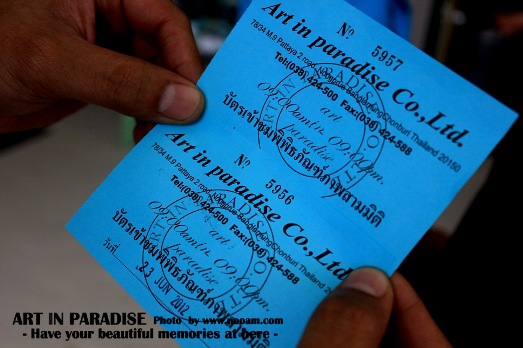 Art in paradise Co., Ltd.
No 5957
78/34 M.9 Pattaya 2 road Nongprue Banglamung Chonburi Thailand 20150
Tel:(038) 424-500 Fax:(038) 424-588
บัตรเข้าชมพิพิธภัณฑ์ภาพสามมิติ
art in paradise
Art in paradise Co., Ltd.
No 5956
78/34 M.9 Pattaya 2 road Nongprue Banglamung Chonburi Thailand
Tel:(038) 424-500 Fax:(038) 424-588
บัตรเข้าชมพิพิธภัณฑ์ภาพ
art in paradise
วันที่ 23 JUN 2012
ART IN PARADISE Photo by
- Have your beautiful memories at here -